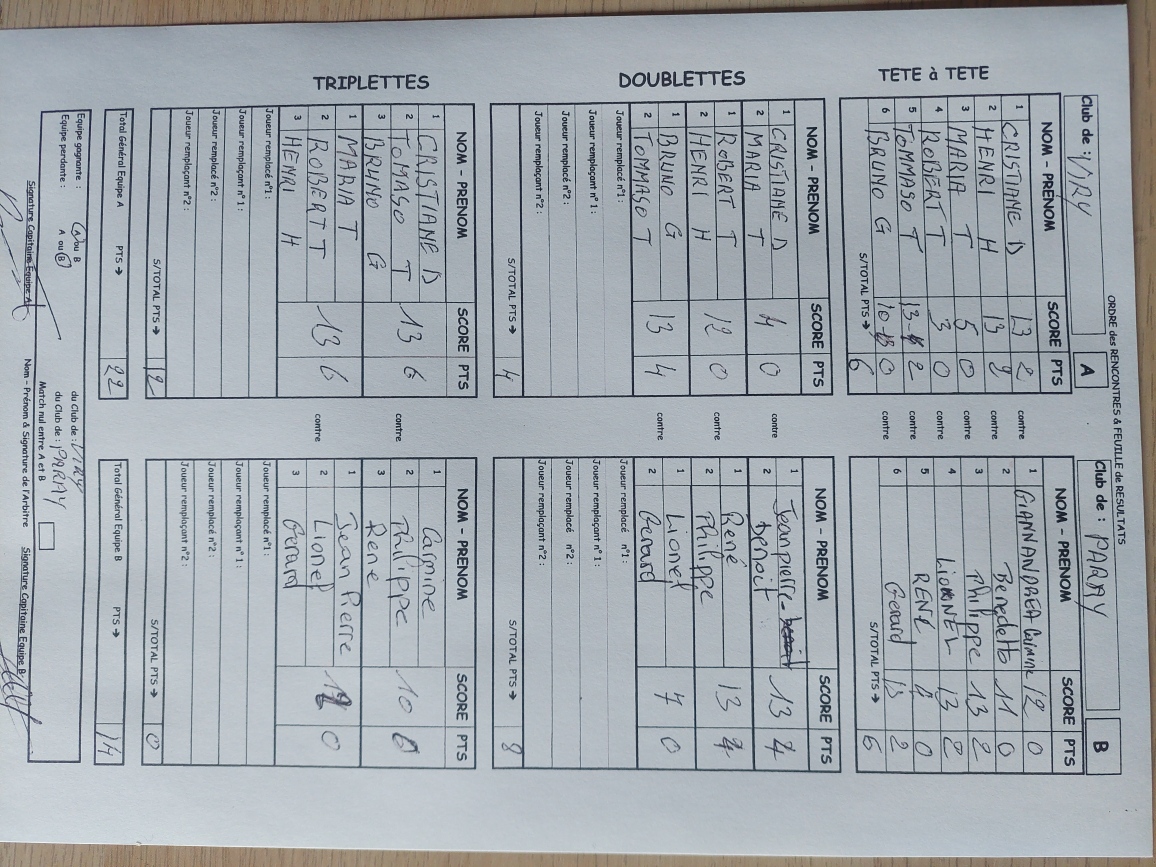 ORDRE des RENCONTRES & FEUILLE de RESULTATS
Club de : VIRY A
Club de : PARAY B
TETE à TETE
NOM - PRENOM SCORE PTS
1 CRISTIANE D 13 2
2 HENRI H 13 2
3 MARIA T 5 0
4 ROBERT T 3 0
5 TOMMASO T 13 2
6 BRUNO G 10 0
S/TOTAL PTS → 6
contre
contre
contre
contre
contre
contre
NOM - PRENOM SCORE PTS
1 GIANNANDREA Carmine 12 0
2 Benedetto 11 0
3 Philippe 13 2
4 LIONNEL 13 2
5 RENE 0
6 Gerard 13 2
S/TOTAL PTS → 6
DOUBLETTES
NOM - PRENOM SCORE PTS
1 CRISTIANE D
2 MARIA T 4 0
1 ROBERT T
2 HENRI H 12 0
1 BRUNO G
2 TOMMASO T 13 4
Joueur remplacé n°1 :
Joueur remplaçant n°1 :
Joueur remplacé n°2 :
Joueur remplaçant n°2 :
S/TOTAL PTS → 4
contre
contre
contre
NOM - PRENOM SCORE PTS
1 Jeanpierre
2 benoit 13 4
1 René
2 Philippe 13 4
1 Lionel
2 Gerard 7 0
Joueur remplacé n°1 :
Joueur remplaçant n°1 :
Joueur remplacé n°2 :
Joueur remplaçant n°2 :
S/TOTAL PTS → 8
TRIPLETTES
NOM - PRENOM SCORE PTS
1 CRISTIANE D
2 TOMASO T 13 6
3 BRUNO G
1 MARIA T
2 ROBERT T 13 6
3 HENRI H
Joueur remplacé n°1 :
Joueur remplaçant n°1 :
Joueur remplacé n°2 :
Joueur remplaçant n°2 :
S/TOTAL PTS → 12
contre
contre
NOM - PRENOM SCORE PTS
1 Carmine
2 Philippe 10 0
3 Rene
1 Jean Pierre
2 Lionel 0
3 Gerard
Joueur remplacé n°1 :
Joueur remplaçant n°1 :
Joueur remplacé n°2 :
Joueur remplaçant n°2 :
S/TOTAL PTS → 0
Total Général Equipe A PTS → 22
Total Général Equipe B PTS → 14
Equipe gagnante : A ou B du Club de : VIRY
Equipe perdante : A ou B du Club de : PARAY
Match nul entre A et B
Signature Capitaine Equipe A Nom - Prénom & Signature de l'Arbitre Signature Capitaine Equipe B